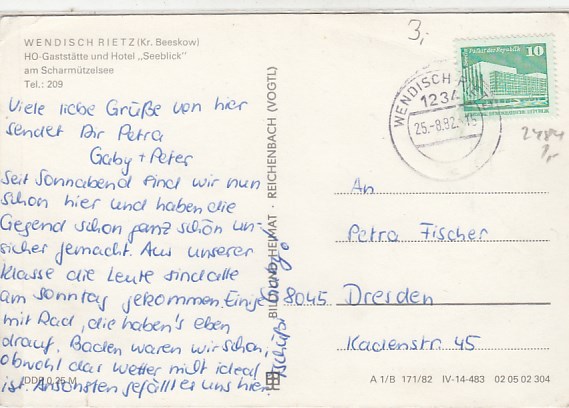 WENDISCH RIETZ (Kr. Beeskow)
HO-Gaststätte und Hotel „Seeblick"
am Scharmützelsee
Tel.: 209
Viele liebe Grüße von hier
sendet Dir Petra
Gaby + Peter
Seit Sonnabend sind wir nun
schon hier und haben die
Gegend schon ganz schön un-
sicher gemacht. Aus unserer
Klasse die Leute sind alle
am Sonntag gekommen. Einige
mit Rad, die haben's eben
drauf. Baden waren wir schon,
obwohl das Wetter nicht ideal
ist. Ansonsten gefällt es uns hier
Tschüß!
DDR 0,25 M
BILD UND HEIMAT · REICHENBACH (VOGTL)
3,-
Palast der Republik
10
DEUTSCHE DEMOKRATISCHE REPUBLIK
WENDISCH
1234
25.-8.82.-15
2484
1,-
An
Petra Fischer
8045 Dresden
Kadenstr. 45
A 1/B 171/82 IV-14-483 02 05 02 304